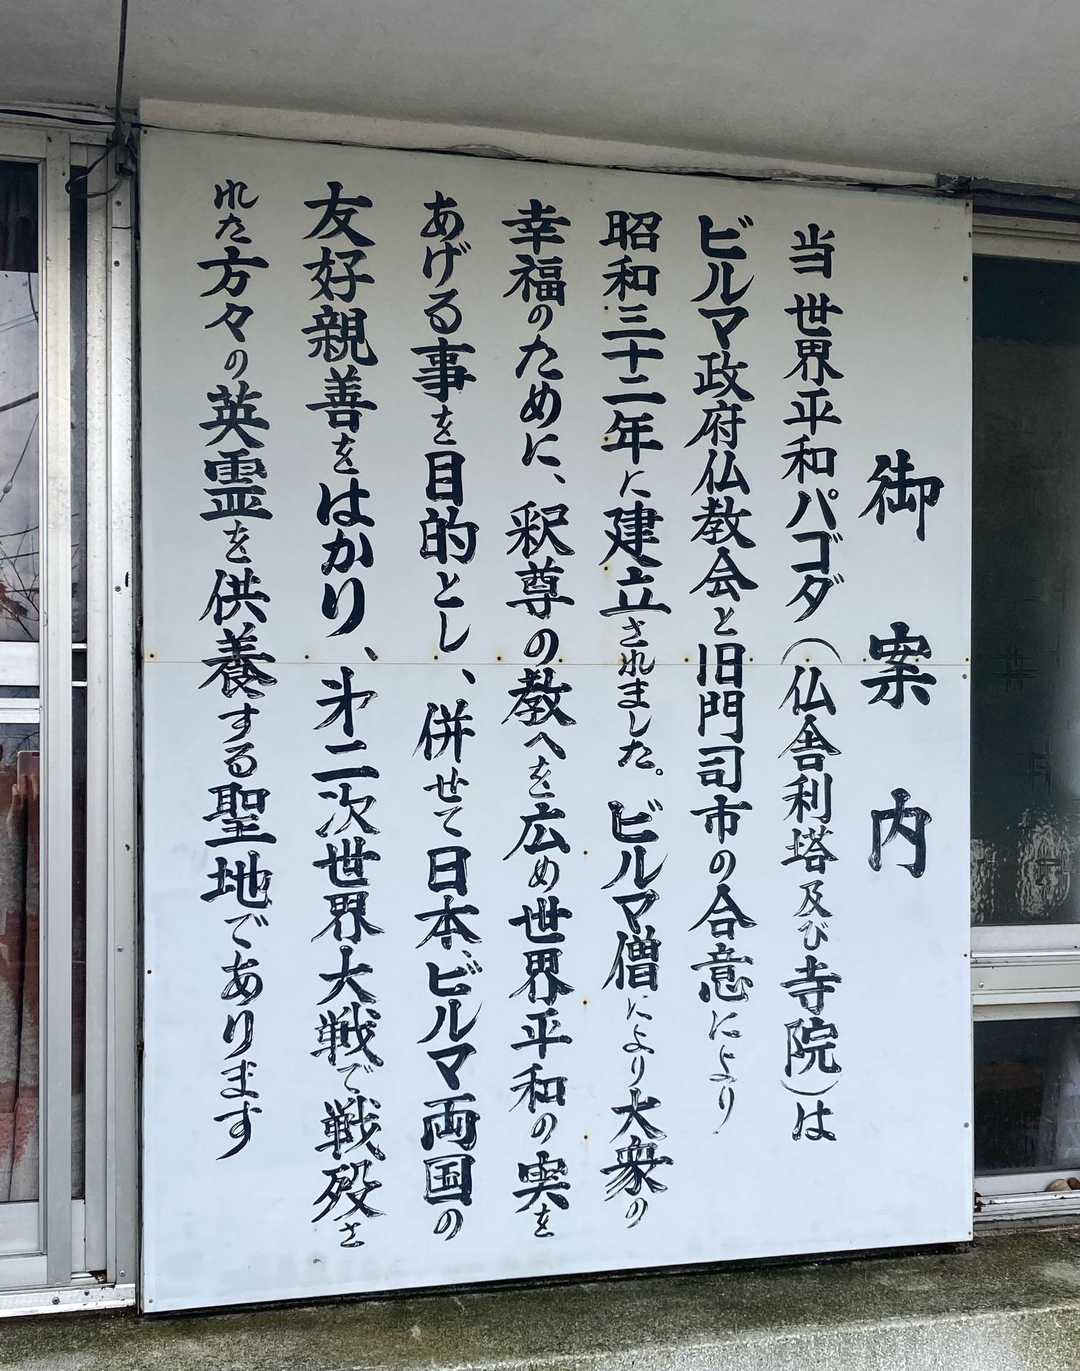 御案内
当世界平和パゴダ（仏舎利塔及び寺院）は
ビルマ政府仏教会と旧門司市の合意により
昭和三十二年に建立されました。ビルマ僧により大衆の
幸福のために、釈尊の教へを広め世界平和の実を
あげる事を目的とし、併せて日本、ビルマ両国の
友好親善をはかり、㐧二次世界大戦で戦殁さ
れた方々の英霊を供養する聖地であります